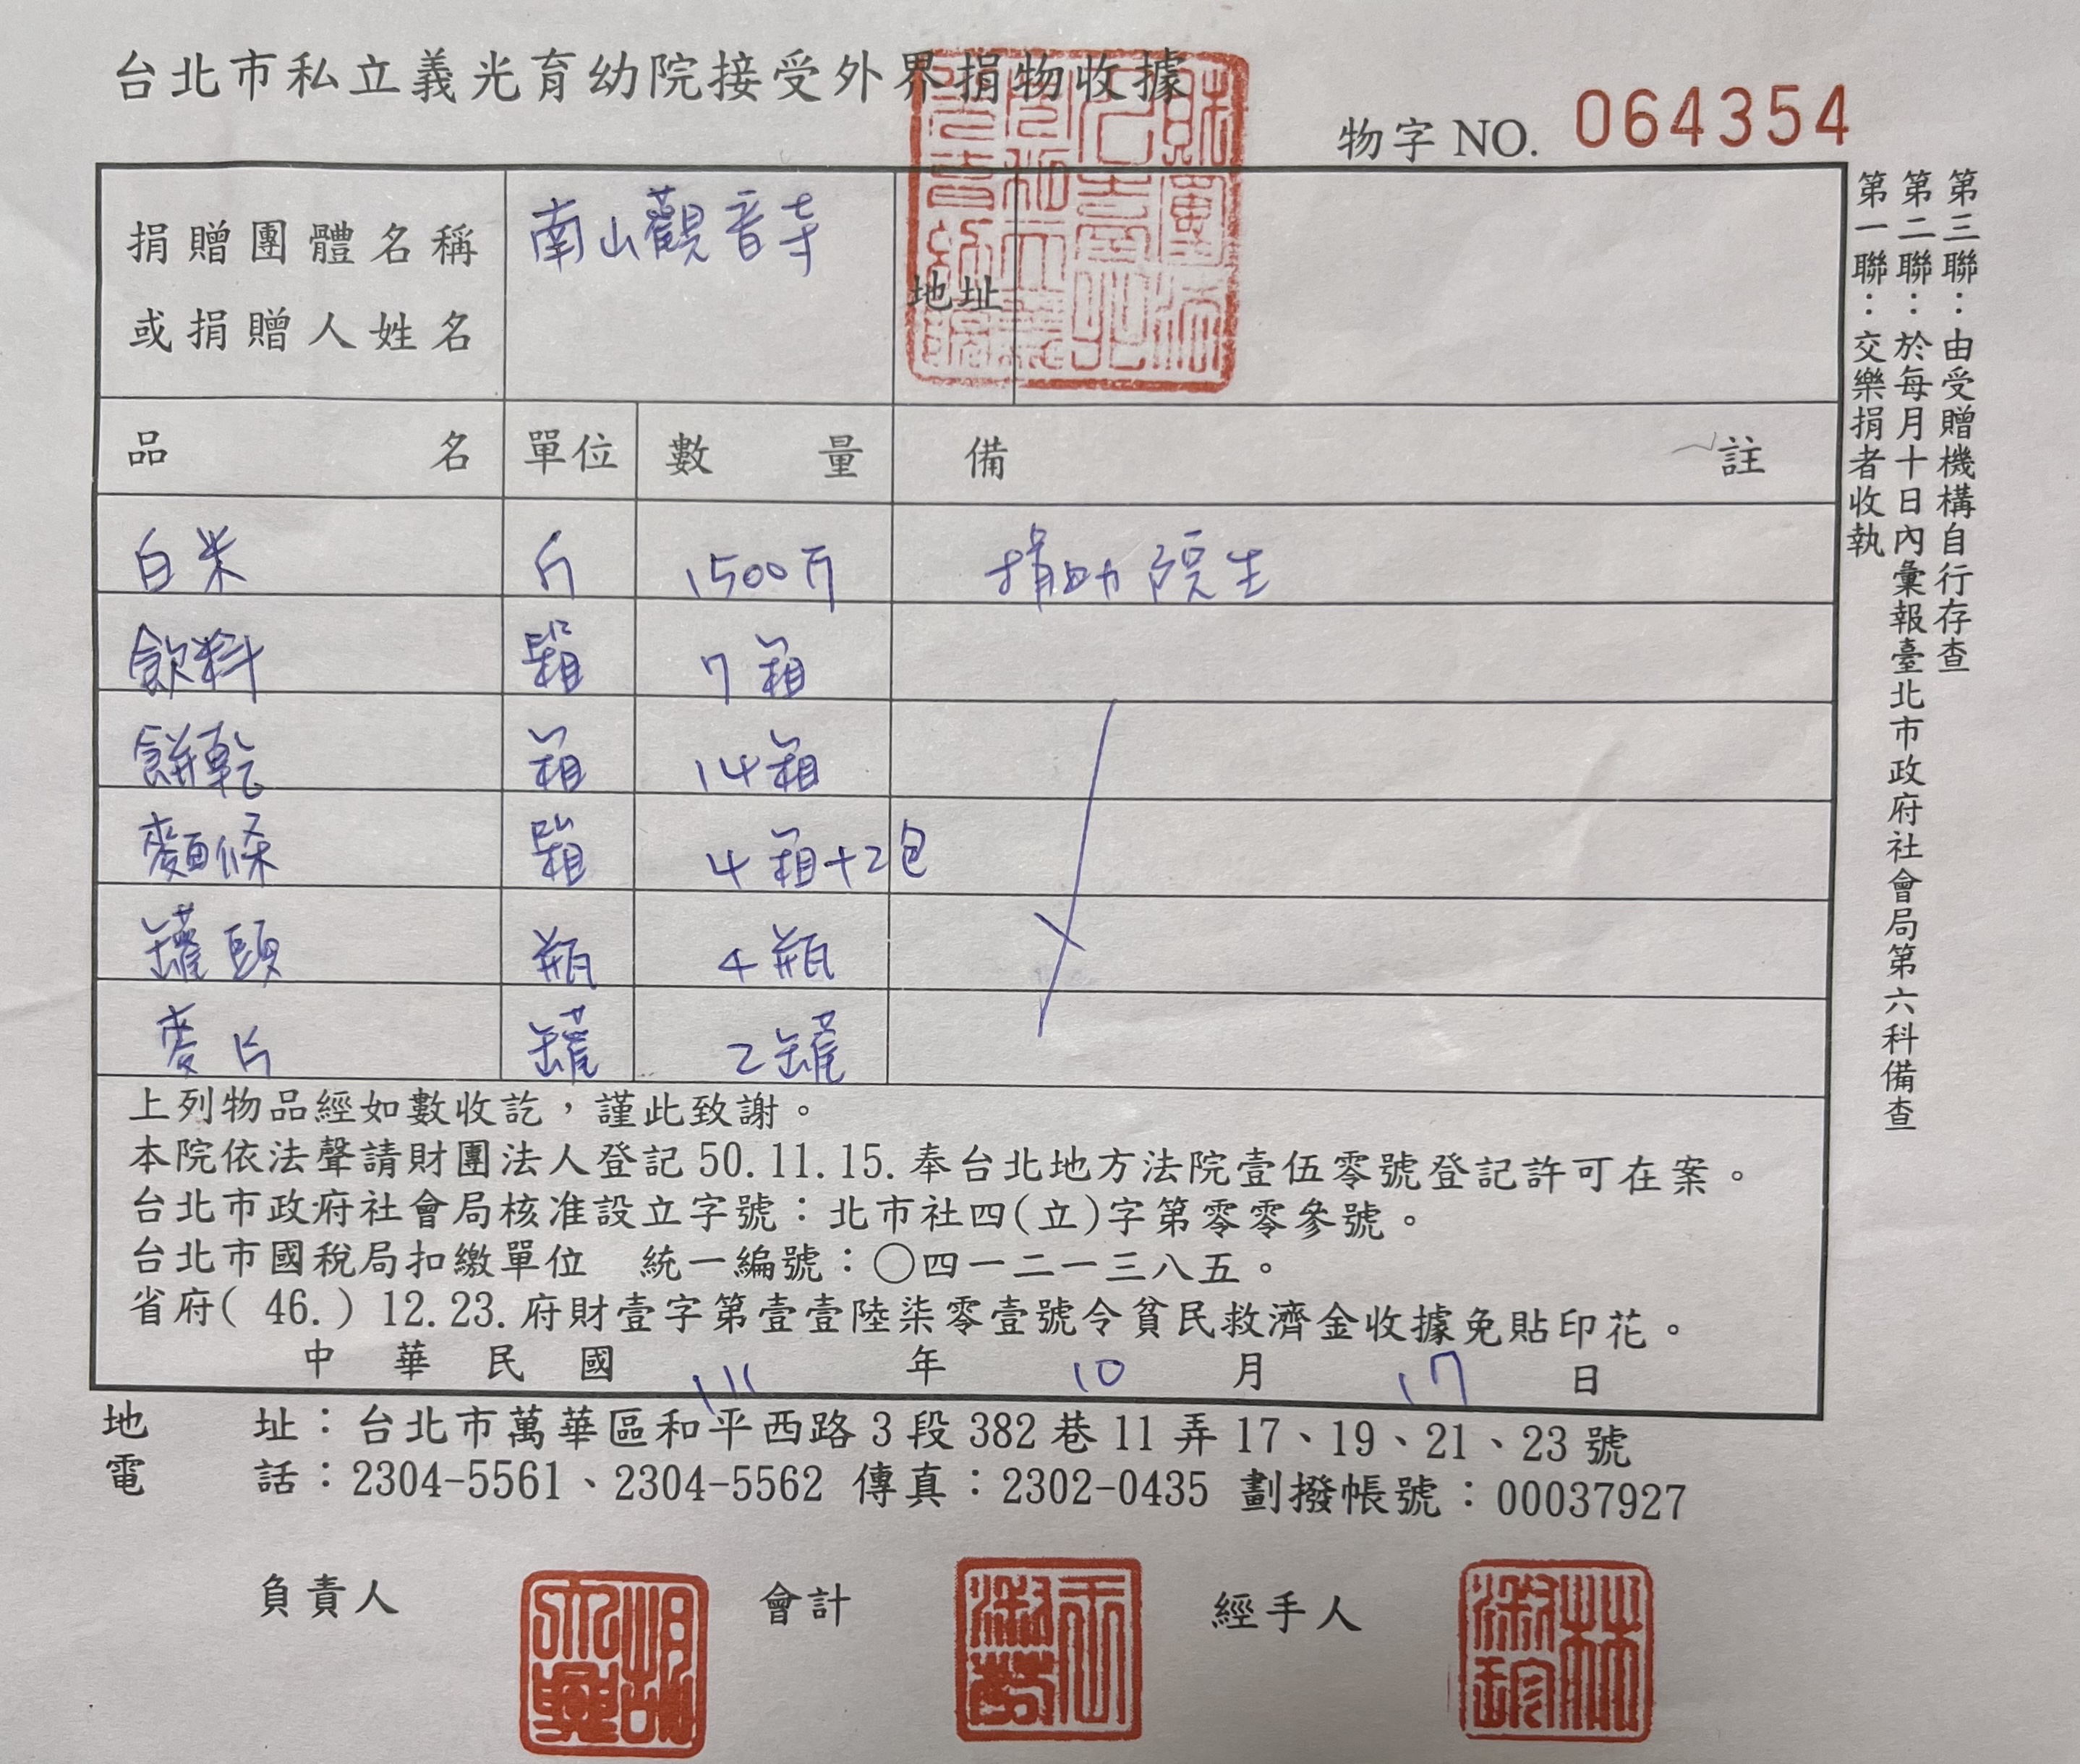 台北市私立義光育幼院接受外界捐物收據
物字 NO. 064354
捐贈團體名稱 或捐贈人姓名 南山觀音寺 地址
品名 單位 數量 備註
白米 斤 1500斤 捐助院生
飲料 箱 7箱
餅乾 箱 14箱
麵條 箱 4箱+2包
罐頭 瓶 4瓶
麥片 罐 2罐
上列物品經如數收訖，謹此致謝。
本院依法聲請財團法人登記50.11.15.奉台北地方法院壹伍零號登記許可在案。
台北市政府社會局核准設立字號：北市社四(立)字第零零參號。
台北市國稅局扣繳單位 統一編號：○四一二一三八五。
省府( 46.) 12.23.府財壹字第壹壹陸柒零壹號令貧民救濟金收據免貼印花。
中華民國 111 年 10 月 17 日
地址：台北市萬華區和平西路3段382巷11弄17、19、21、23號
電話：2304-5561、2304-5562 傳真：2302-0435 劃撥帳號：00037927
負責人 會計 經手人
第三聯：由受贈機構自行存查
第二聯：於每月十日內彙報臺北市政府社會局第六科備查
第一聯：交樂捐者收執